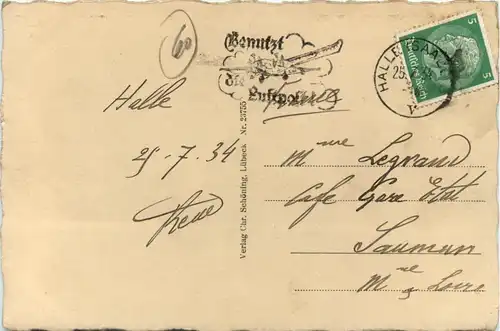 60
Benutzt
die
Luftpost
HALLE (SAALE)
5
5
Deutsches Reich
Halle
25-7.34
René
Verlag Chr. Schöning, Lübeck Nr. 23755
Mme Legrand
Café Gare Etat
Saumur
Mne & Loire